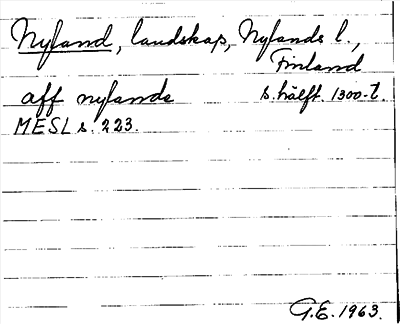 Nyland, landskap, Nylands l.,
Finland
aff nylande s. hälft. 1300-t.
MESL s. 223.
G.E. 1963.